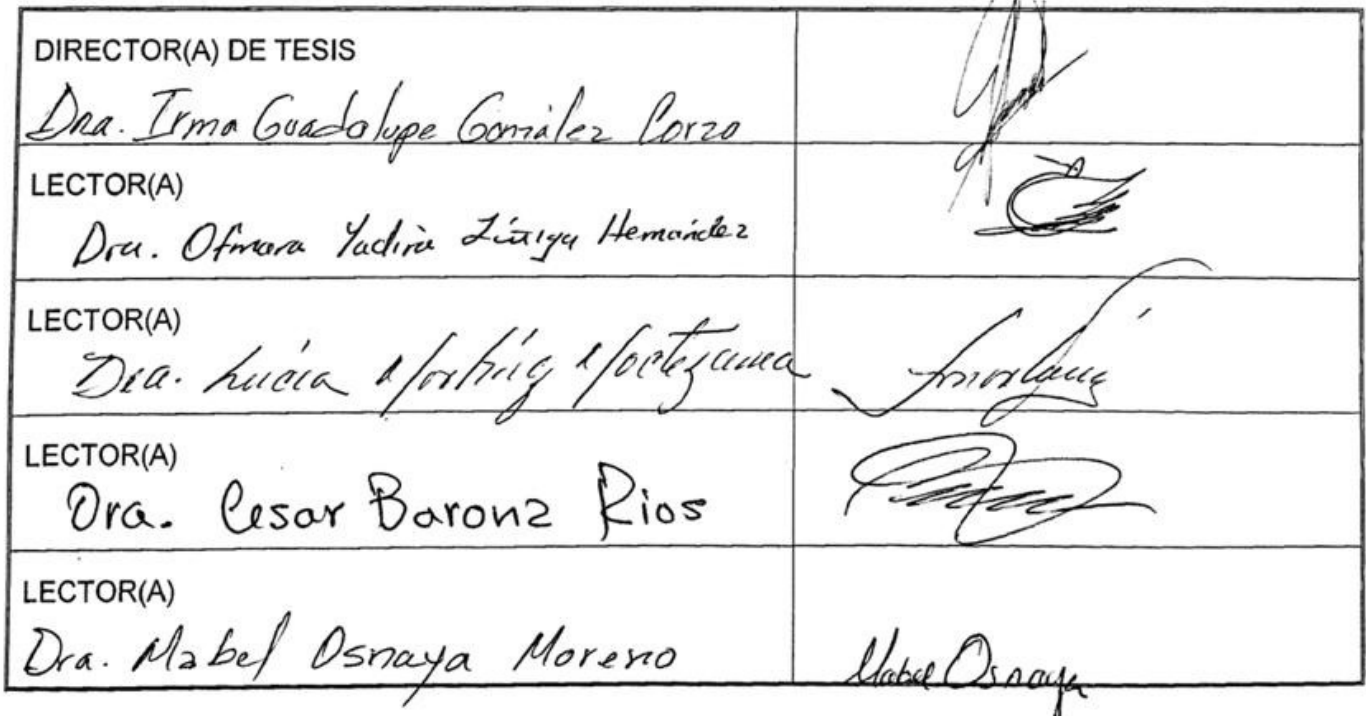 DIRECTOR(A) DE TESIS
Dra. Irma Guadalupe González Corzo
LECTOR(A)
Dra. Ofmara Yadira Zúñiga Hernández
LECTOR(A)
Dra. Lucía Moctezuma
LECTOR(A)
Dra. Cesar Barona Rios
LECTOR(A)
Dra. Mabel Osnaya Moreno
Mabel Osnaya